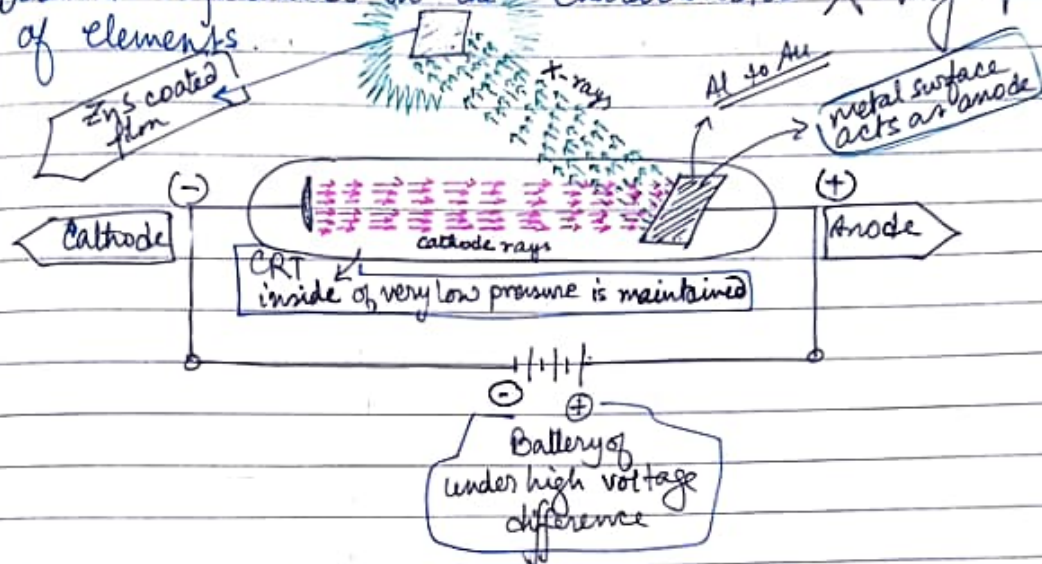 of elements.
ZnS coated
film
X-rays
Al to Au
metal surface
acts as anode
(-)
(+)
Cathode
Anode
cathode rays
CRT
inside of very low pressure is maintained
- +
Battery of
under high voltage
difference